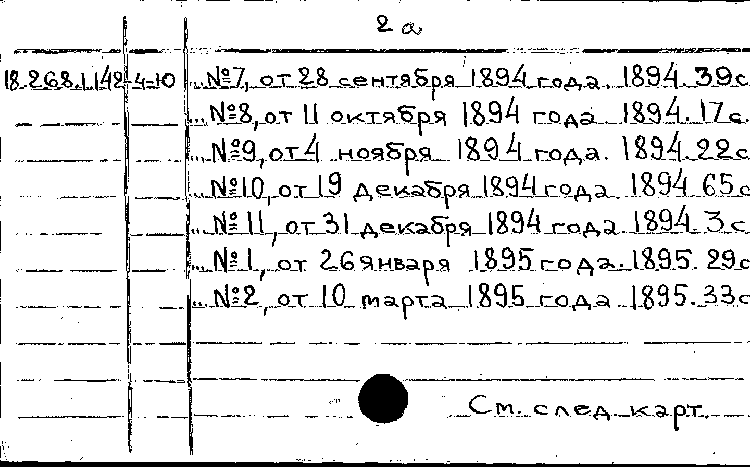 2а
18.268.1.142 4-10 ... №7, от 28 сентября 1894 года. 1894. 39с
... №8, от 11 октября 1894 года 1894. 17с.
... №9, от 4 ноября 1894 года. 1894. 22с
... №10, от 19 декабря 1894 года 1894 65с
... №11, от 31 декабря 1894 года 1894. 3с
... №1, от 26 января 1895 года. 1895. 29с
... №2, от 10 марта 1895 года. 1895. 33с
См. след. карт.